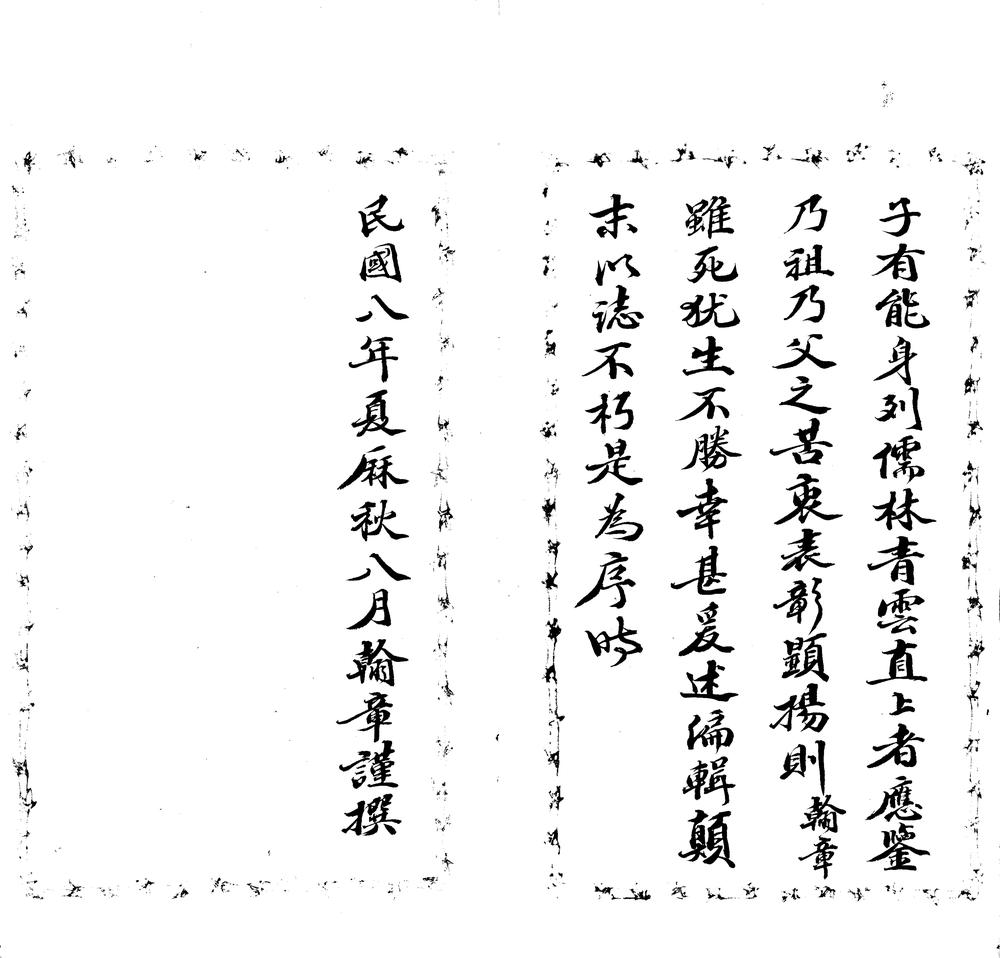 子有能身列儒林青雲直上者應鑒
乃祖乃父之苦衷表彰顯揚則翰章
雖死犹生不勝幸甚爰述偏輯顛
末以誌不朽是為序時
民國八年夏厤秋八月翰章謹撰